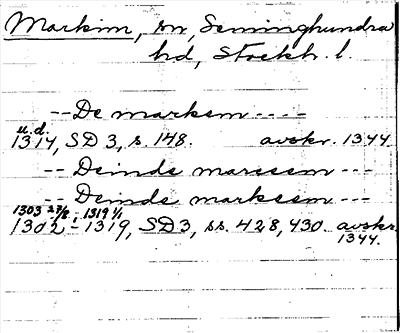 Markim, sn, Seminghundra
hd, Stockh. l.
-- De markem ----
u.d.
1314, SD 3, s. 148. avskr. 1344
-- Deinde mareem ---
-- Deinde markeem ---
1303 27/2, 1319 1/1
1302 - 1319, SD3, ss. 428, 430. avskr.
1344.